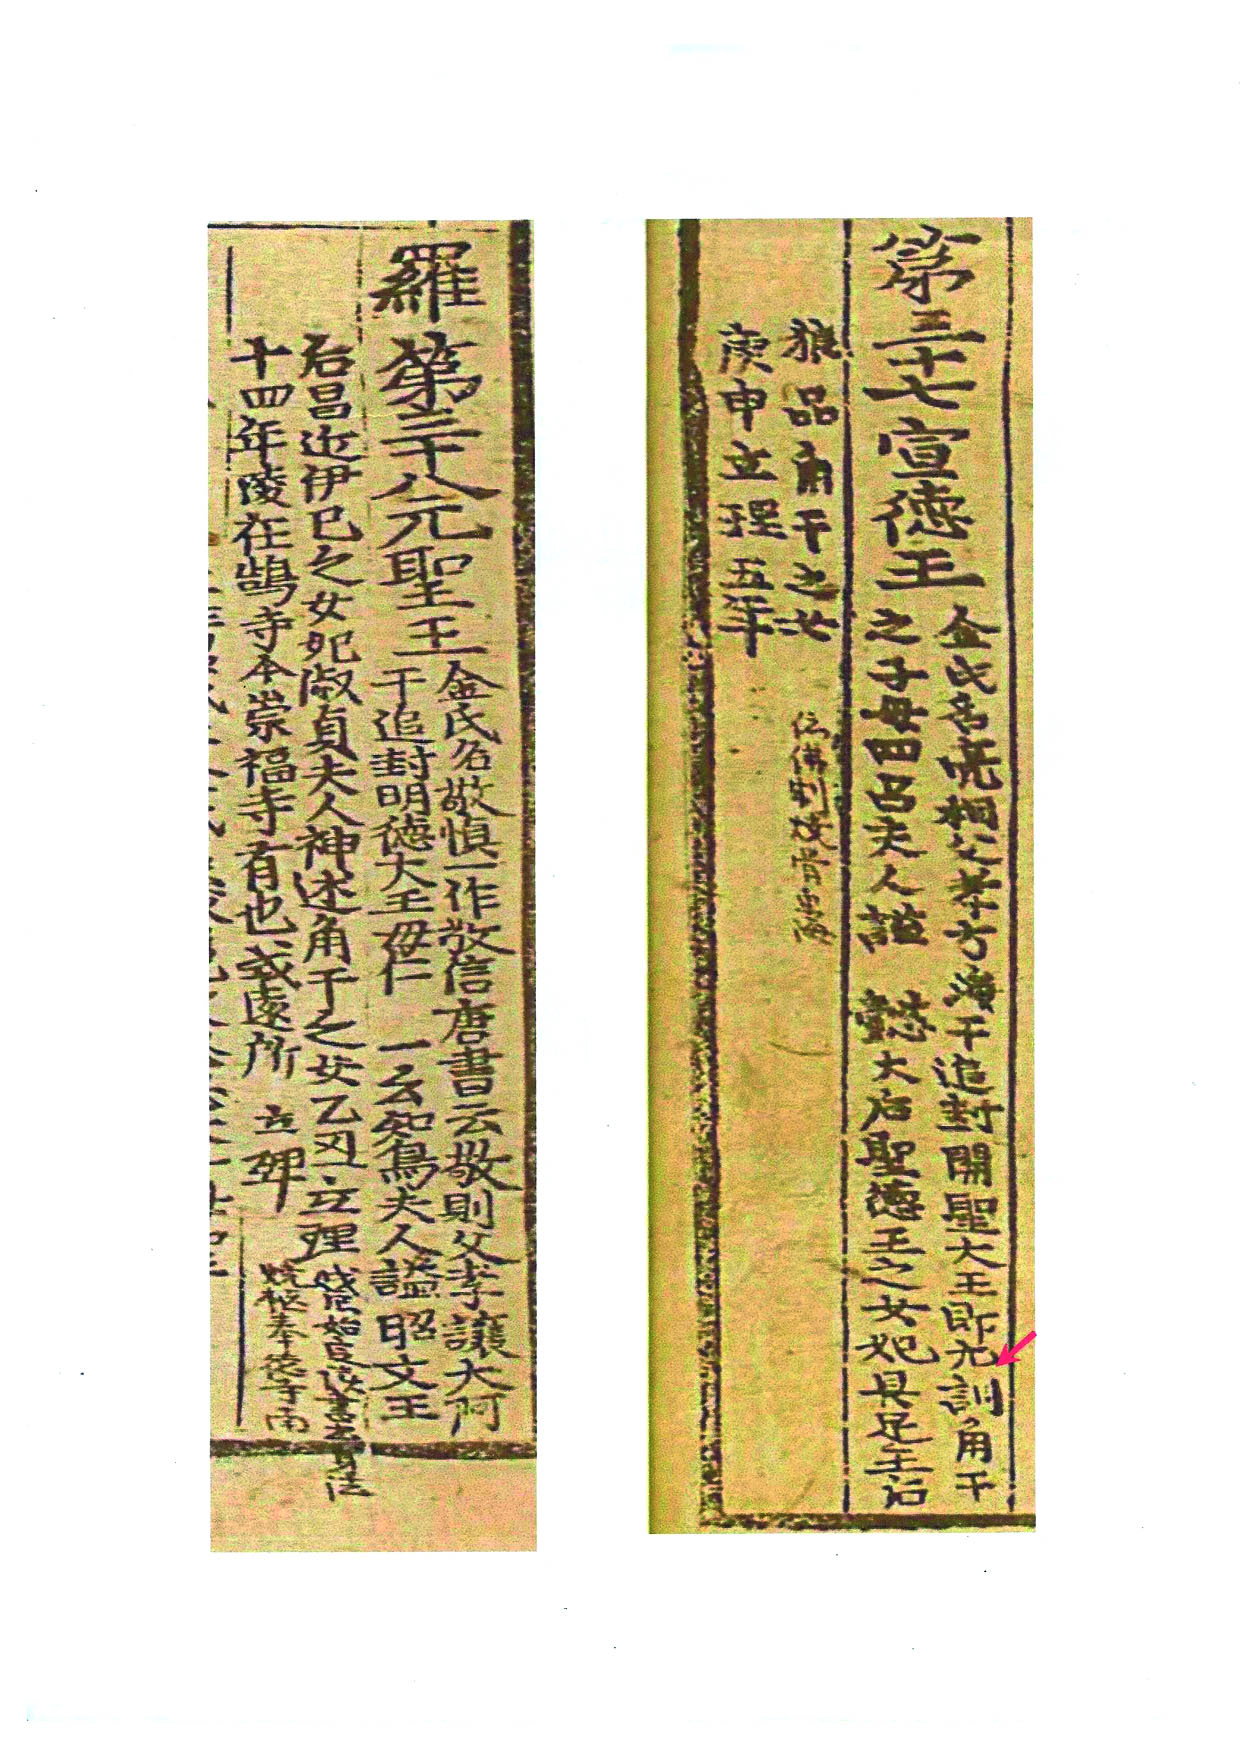 第三十七宣德王
金氏名亮相父孝方海干追封開聖大王即元訓角干
之子母四召夫人諡 懿大后聖德王之女妃具足王后
狼品角干之女
庚申立理五年
羅
第三十八元聖王
金氏名敬慎一作敬信唐書云敬則父孝讓大阿
干追封明德大王母仁 一云知烏夫人諡昭文王
后昌近伊巳之女妃淑貞夫人神述角干之女乙丑立理
十四年陵在鵠寺本崇福寺有也或遠所 立碑